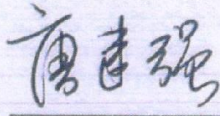 唐建强